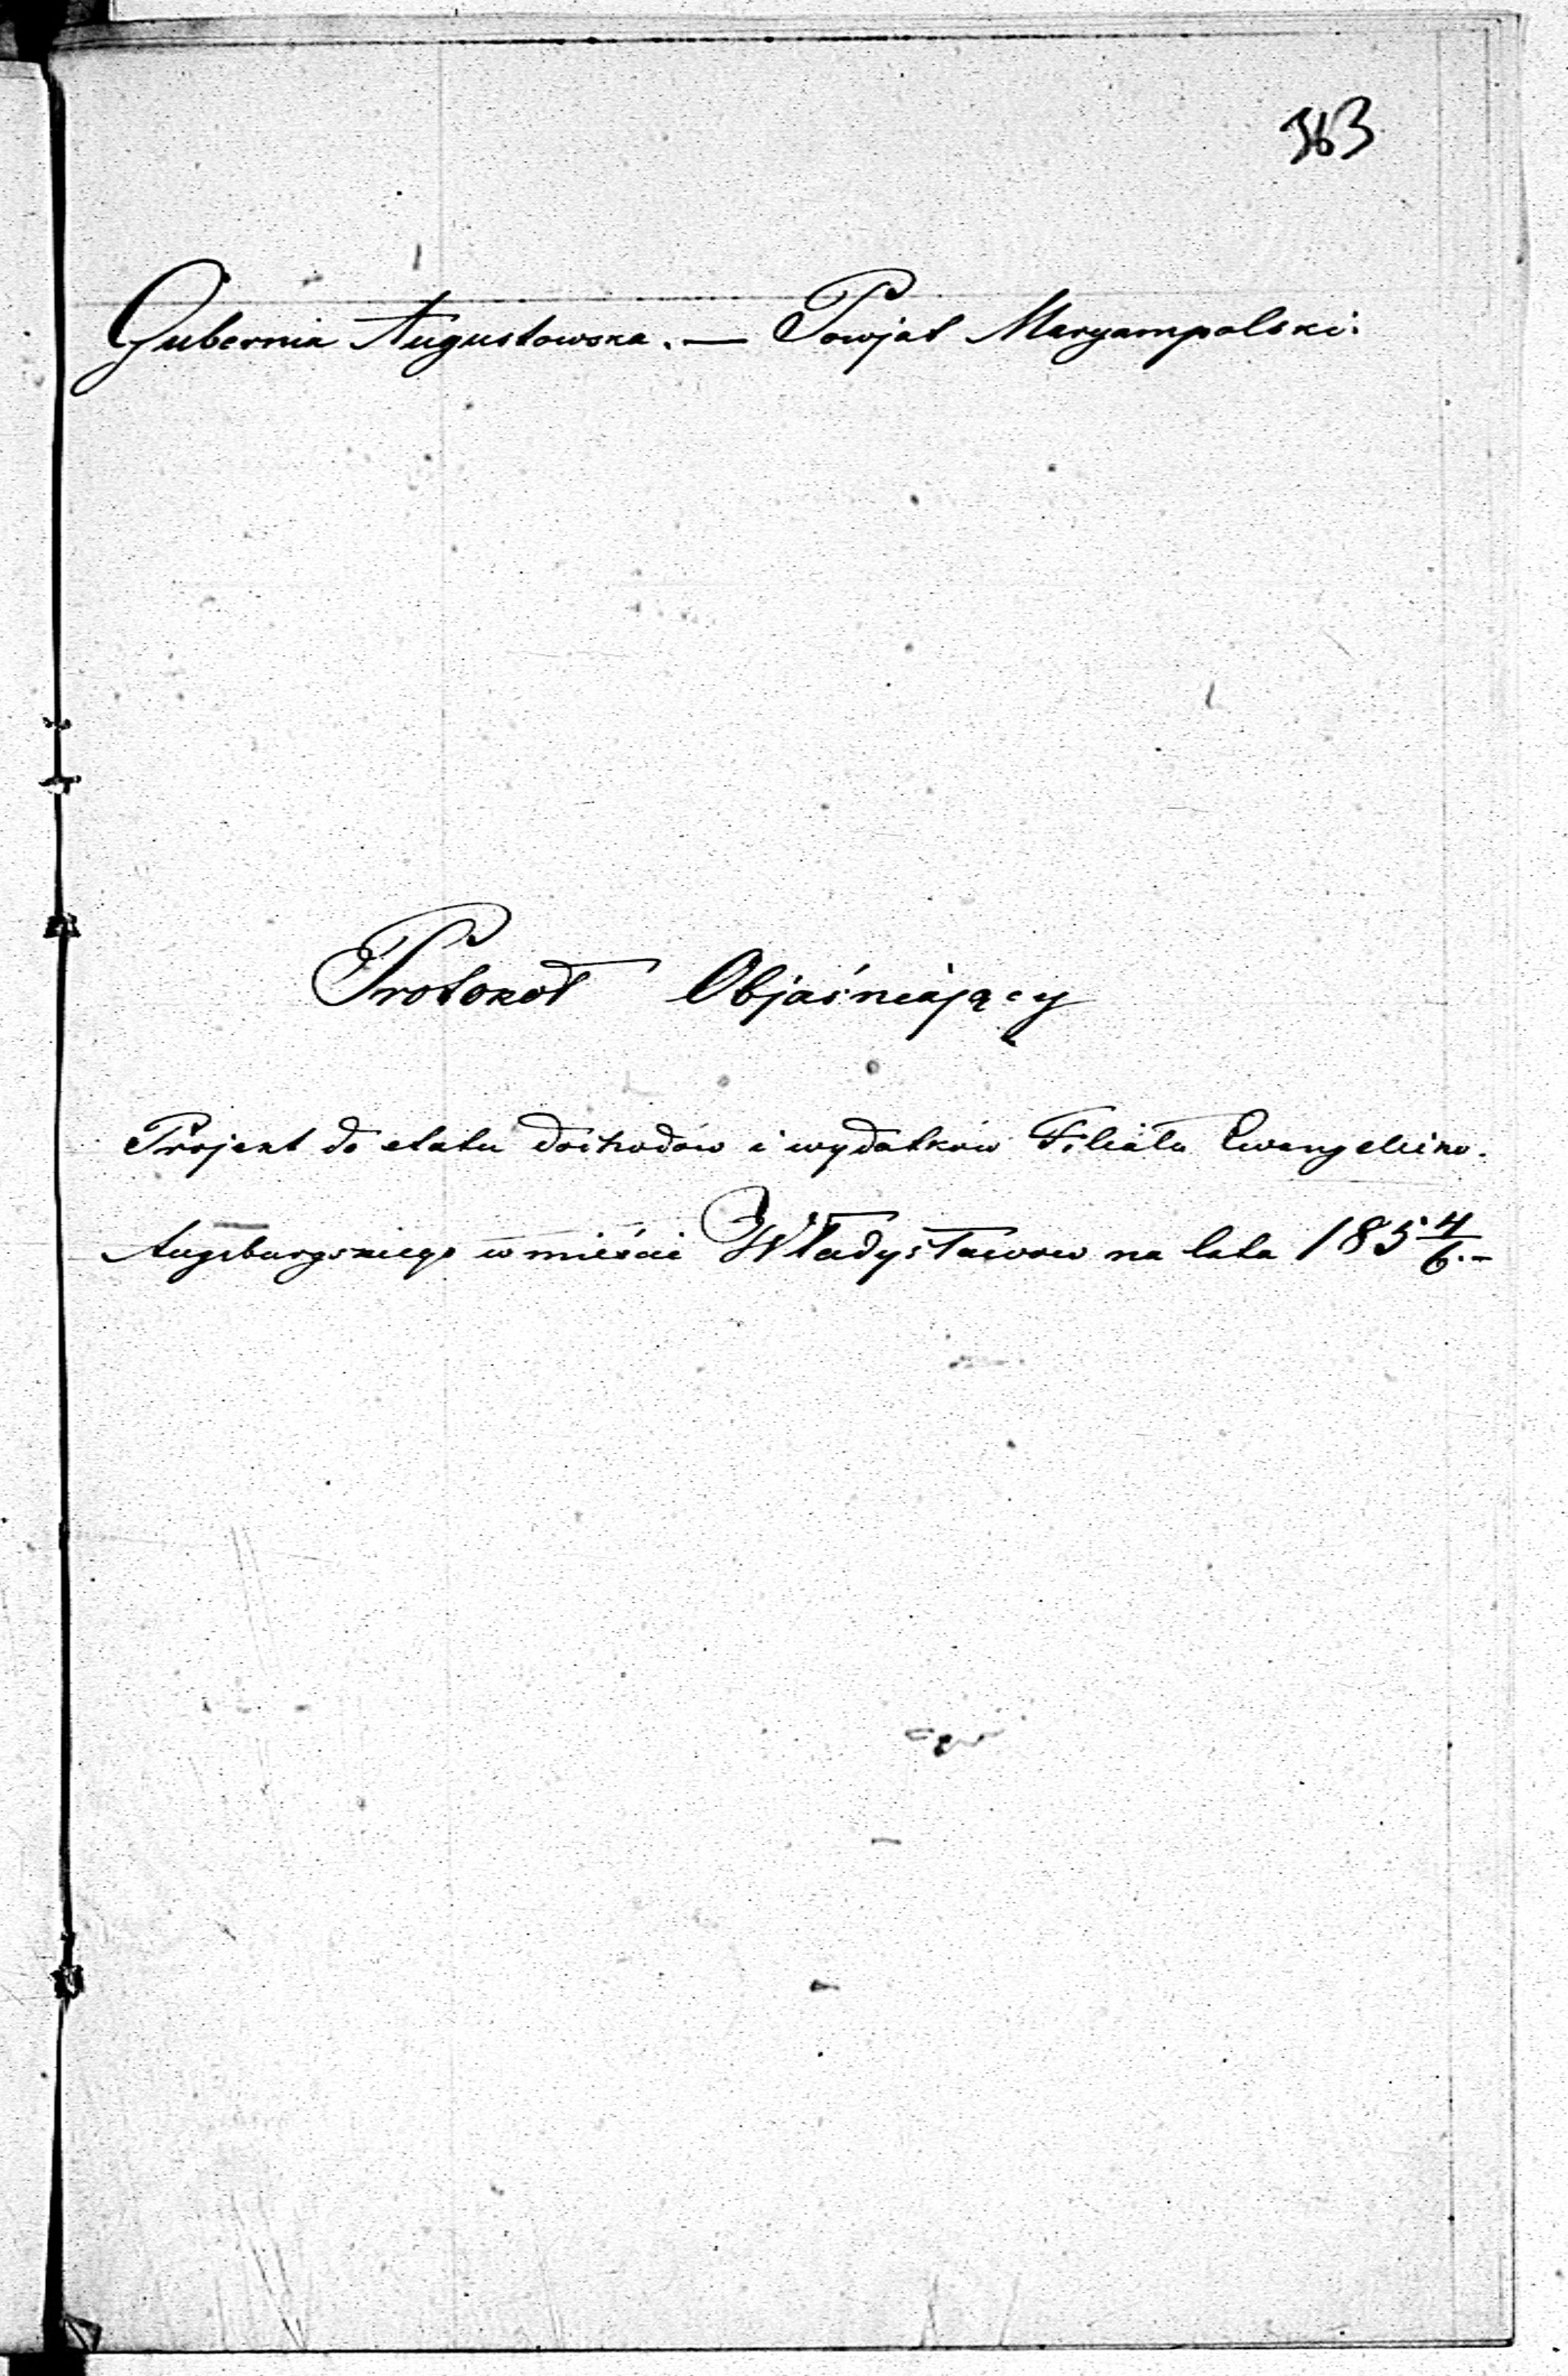 363
Gubernia Augustowska. — Powjat Maryampolski.
Protokół Objaśniający
Projekt do etatu dochodów i wydatków Filiału Ewangelicko.
Augsburgskiego w mieście Władysławow na lata 185 4/6.–